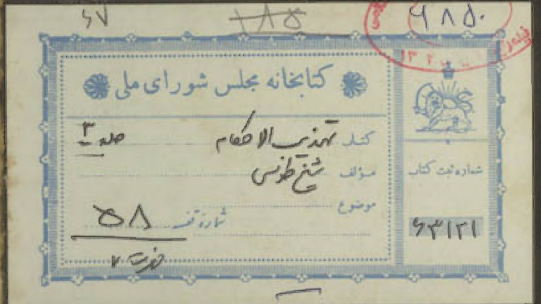 ۶۷ ۱۸۵ ۶۸۵۰
کتابخانه مجلس شورای ملی
کتاب تهذیب الاحکام جلد ۳
مؤلف شیخ طوسی
موضوع
شماره قفسه ۵۸
شماره ثبت کتاب
۶۳۱۲۱